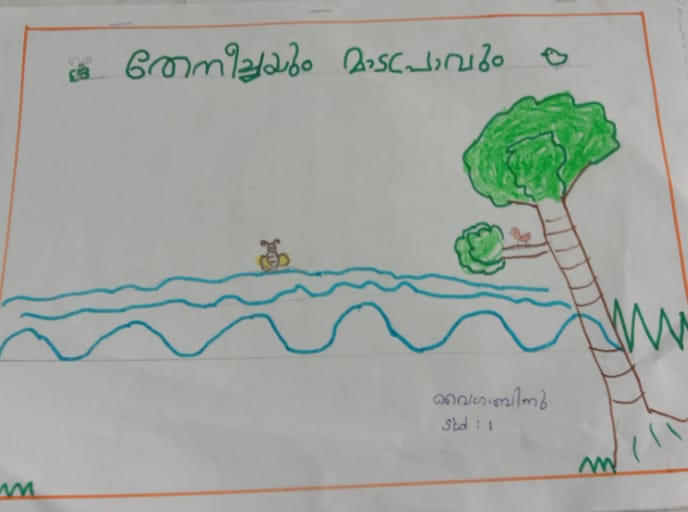 തേനീച്ചയും മാടപ്രാവും
വൈഗബിനു.
Std : 1